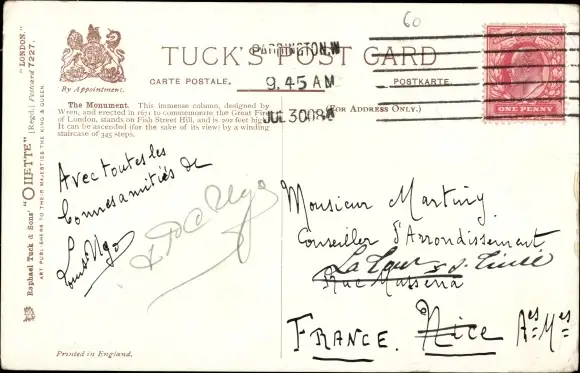 60
TUCK'S POST CARD
By Appointment.
CARTE POSTALE,
POSTKARTE.
(FOR ADDRESS ONLY.)
PADDINGTON.W
9.45 AM
JUL 30 08
ONE PENNY
The Monument. This immense column, designed by
Wren, and erected in 1671 to commemorate the Great Fire
of London, stands on Fish Street Hill, and is 202 feet high.
It can be ascended (for the sake of its view) by a winding
staircase of 345 steps.
Raphael Tuck & Sons' "OILETTE" [Regd.] Postcard 7227. "LONDON."
ART PUBLISHERS TO THEIR MAJESTIES THE KING & QUEEN.
Avec toutes les
bonnes amitiés de
Ngo
Monsieur Martiny
Conseiller d'Arrondissement
La Tour s. Tinée
Rue Masséna
FRANCE. Nice Aes-Mes
Printed in England.